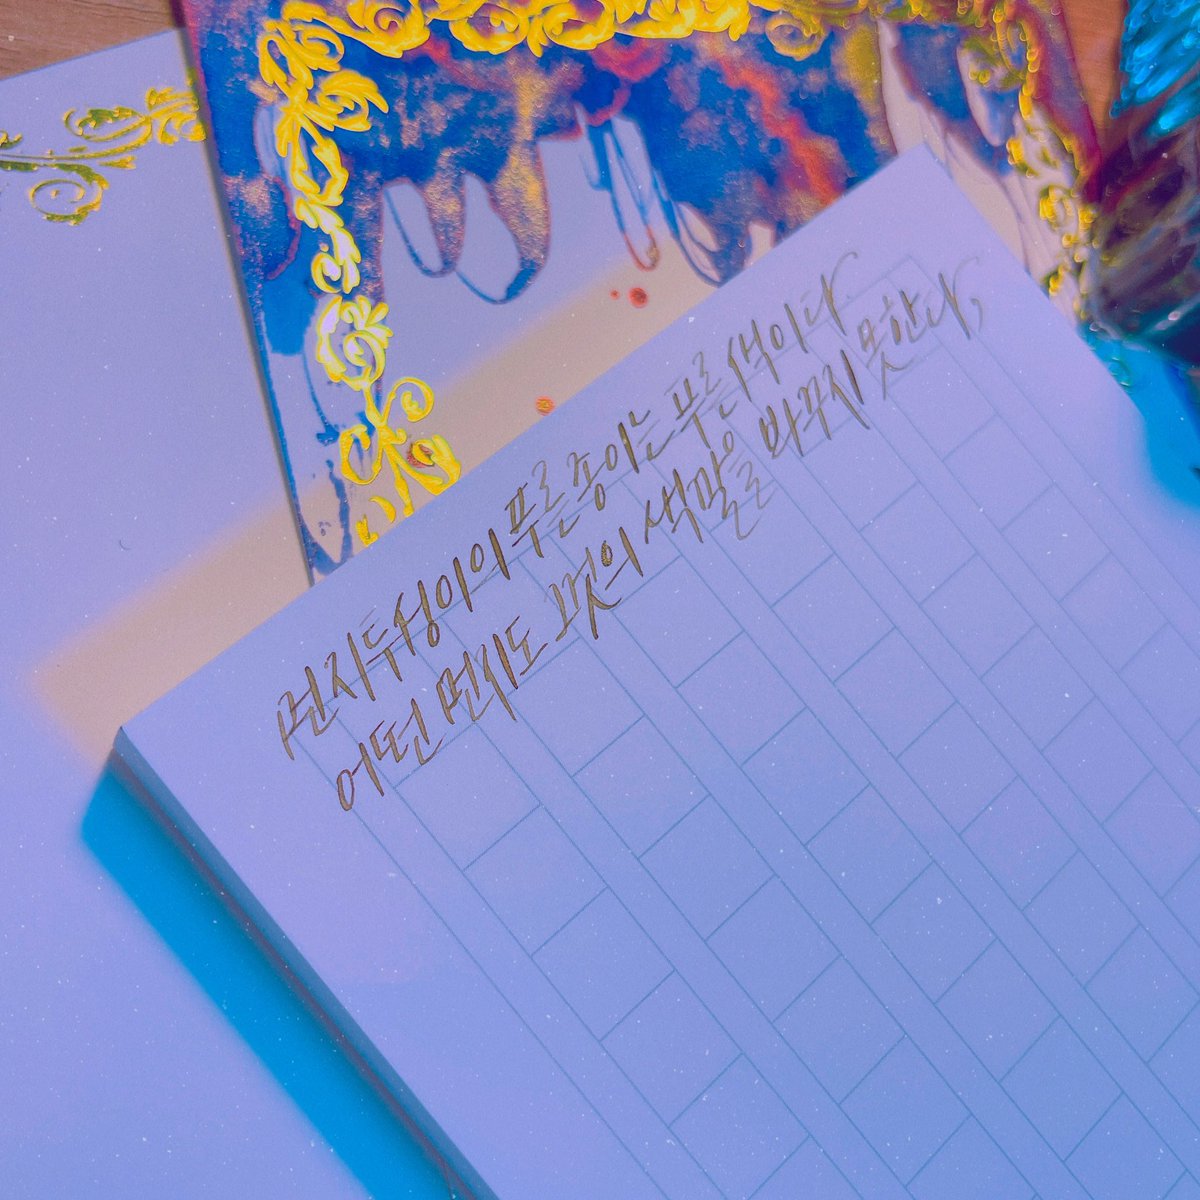 먼지투성이의 푸른 종이는 푸른색이다.
어떤 먼지도 그것의 색깔을 바꾸지 못한다,